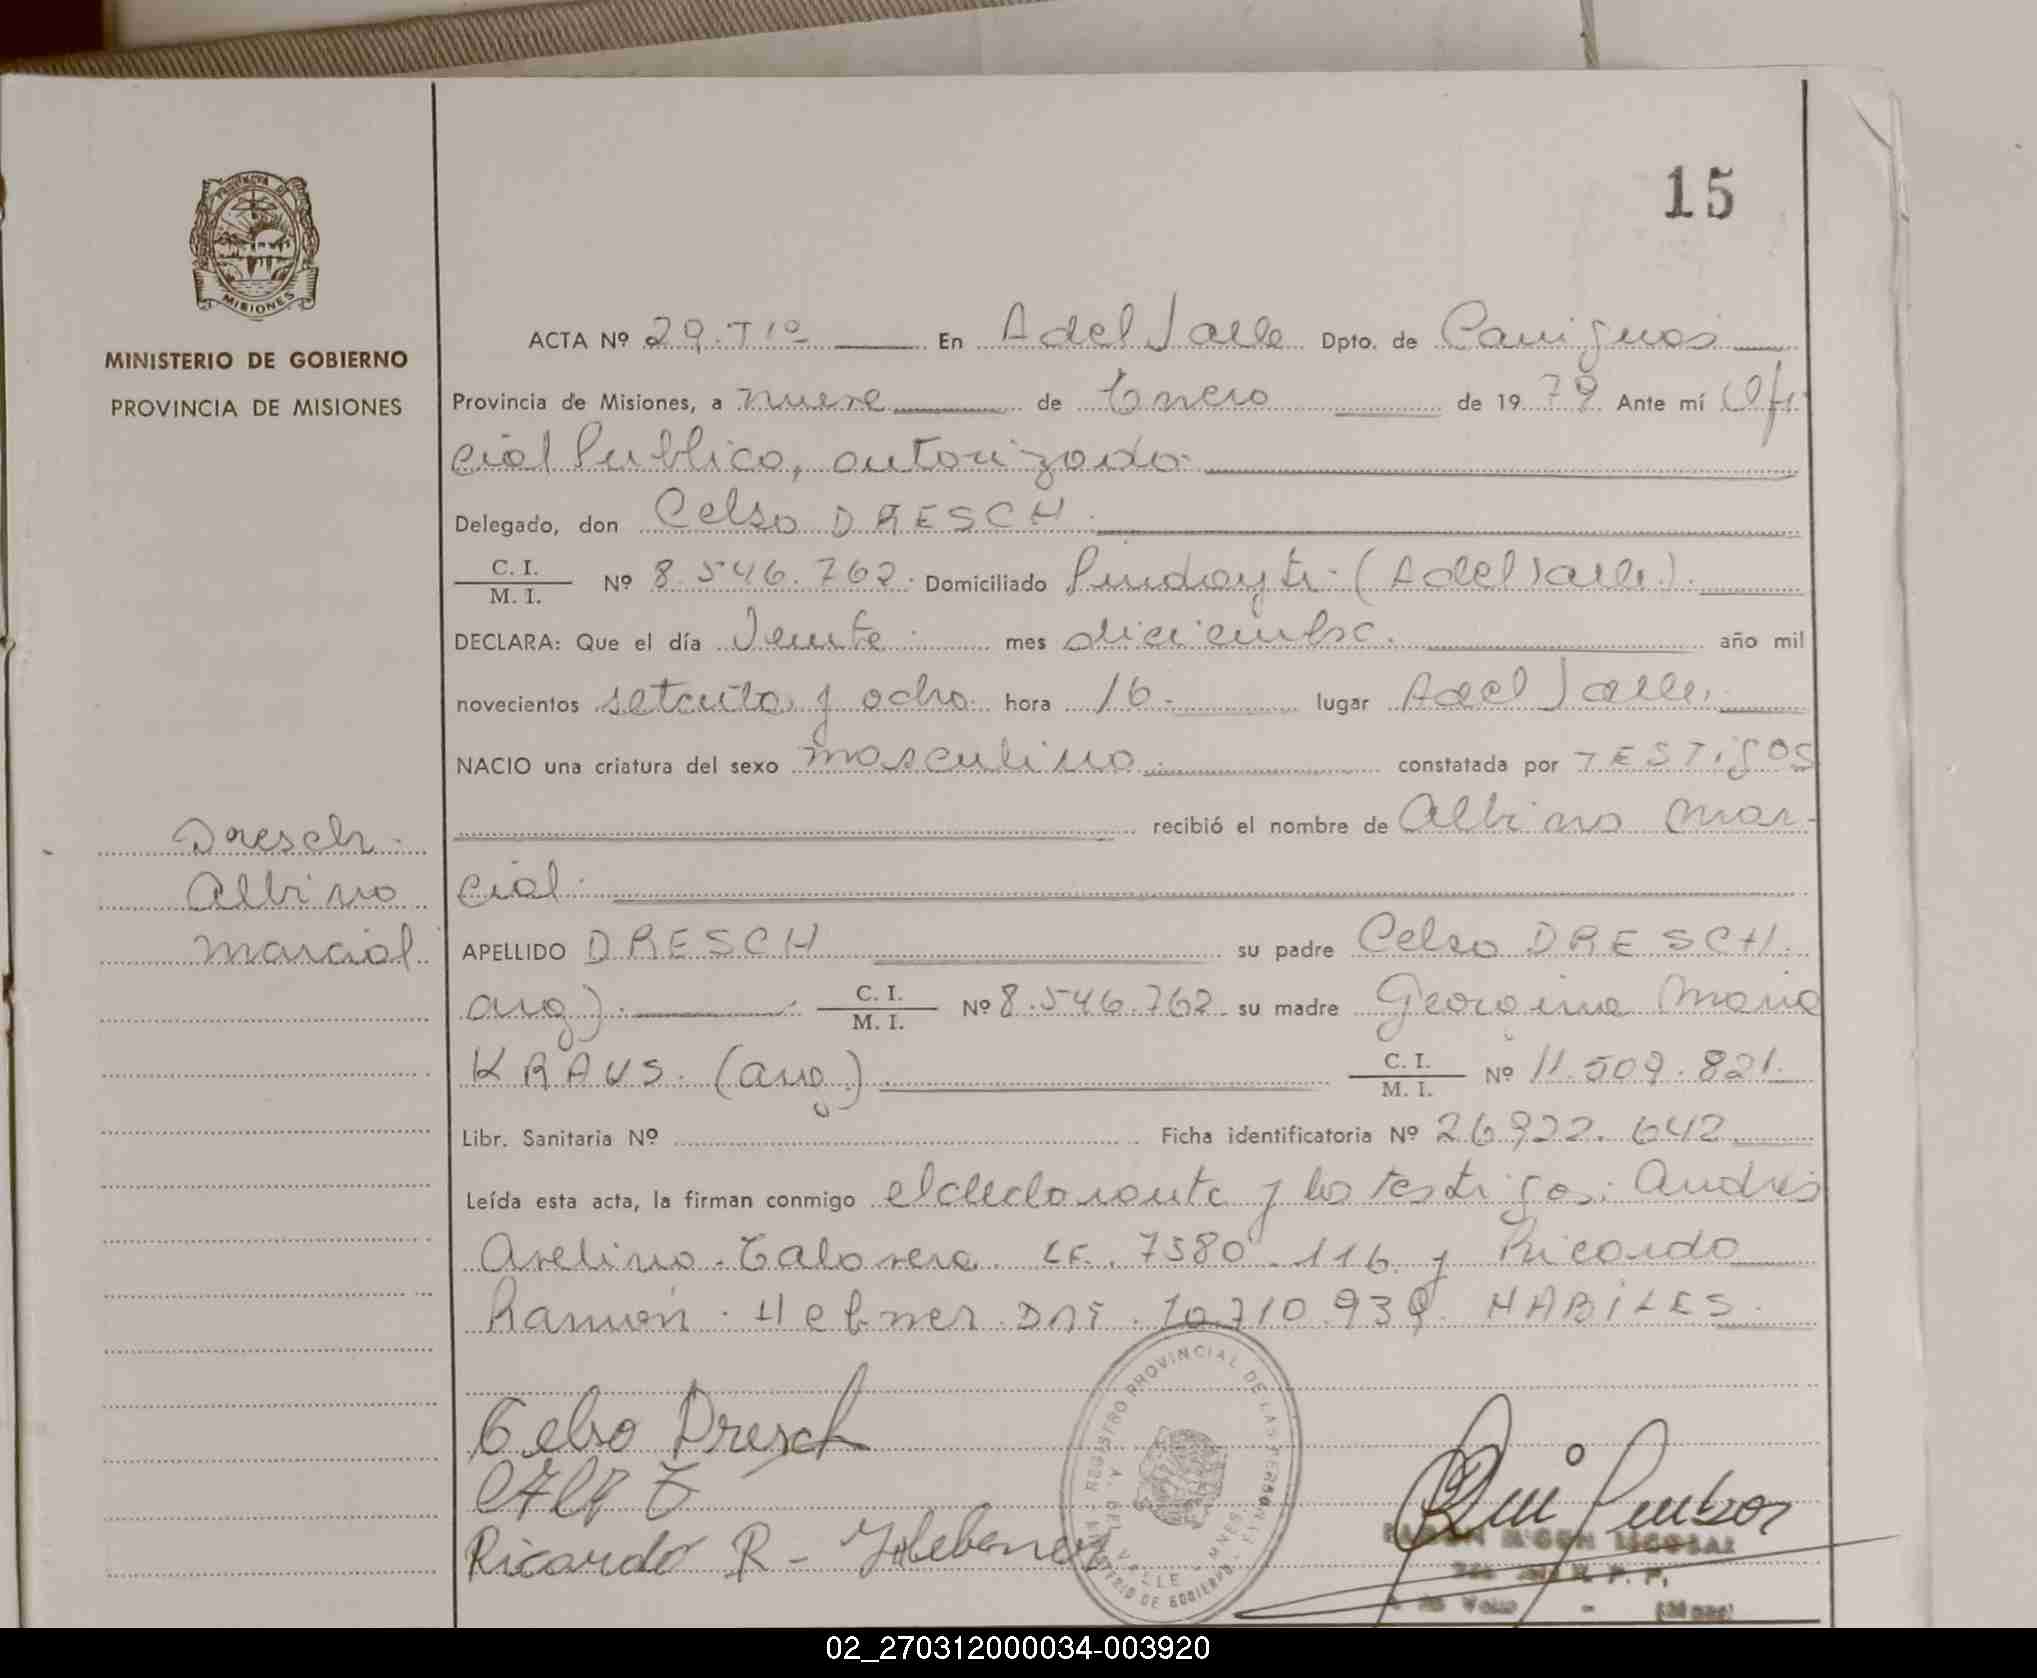 15
PROVINCIA DE
MISIONES
MINISTERIO DE GOBIERNO
PROVINCIA DE MISIONES
Dresch.
Albino
Marcial
ACTA Nº 29. Tº En A del Valle Dpto. de Cainguas
Provincia de Misiones, a nueve de Enero de 1979 Ante mí Ofi
cial Publico, autorizado
Delegado, don Celso DRESCH.
C. I. / M. I. Nº 8.546.762. Domiciliado Pindayti (A del Valle).
DECLARA: Que el día Veinte mes diciembre. año mil
novecientos setenta y ocho hora 16. lugar A del Valle.
NACIO una criatura del sexo masculino constatada por TESTigos
recibió el nombre de Albino Mar-
cial.
APELLIDO DRESCH su padre Celso DRESCH.
arg). C. I. / M. I. Nº 8.546.762. su madre Georgina Maria
KRAUS. (arg.) C. I. / M. I. Nº 11.509.821.
Libr. Sanitaria Nº Ficha identificatoria Nº 26.922.642
Leída esta acta, la firman conmigo el declarante y los testigos: Andrés
Avelino Talavera. LE. 7580.116 y Ricardo
Ramón Hebner DNI. 10.710.939. HABILES.
Celso Dresch
Ricardo R - Hebener
REGISTRO PROVINCIAL DE LAS PERSONAS
A. DEL VALLE - MNES.
MINISTERIO DE GOBIERNO
02_270312000034-003920